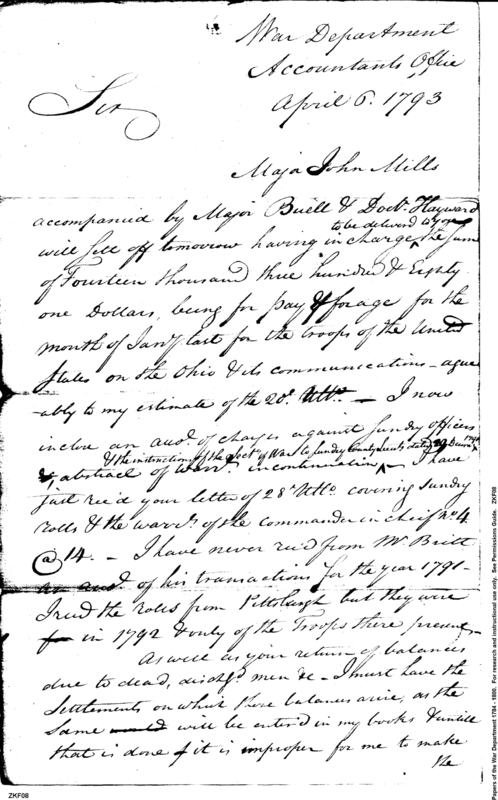 War Department
Accountants Office
April 6. 1793
Sir
Major John Mills
accompanied by Major Buell & Doctr. Hayward
to be deliverd to you
will sett off tomorrow having in charge ^ the sum
of Fourteen thousand three hundred & Eighty
one Dollars, being for pay & forage for the
month of Jany last for the troops of the United
States on the Ohio & its communications – agree
ably to my estimate of the 20t. Ulto – I now
inclose an acct. of charges against sundry officers
& the instruction of the Sect of War to Sundry County Lieuts dated 29 Decemr 
& abstract of warrts in continuation ^ – I have
just rec'd your letter of 28t Ulto. covering sundry
rolls & the warrts. of the commander in cheif No 4
@ 14. – I have never rec'd from Mr Britt
an acct. of his transactions for the year 1791 –
I recd the roles from Pittsburgh but they were
in 1792 & only of the Troops there present –
As well as your return of balances
due to dead, dischgd men &c – I must have the
Settlements on which those balances arise, as the
same will be enter'd in my books & untill
that is done it is improper for me to make
the
ZKF08
Papers of the War Department 1784 - 1800. For research and instructional use only. See Permissions Guide. ZKF08